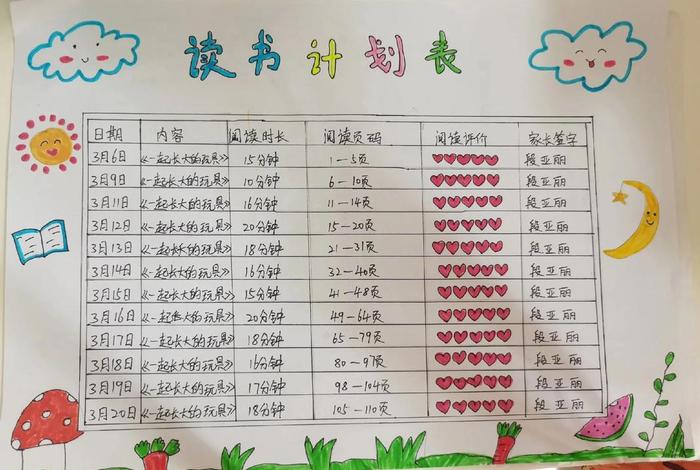 读书计划表
日期 内容 阅读时长 阅读页码 阅读评价 家长签字
3月6日 《一起长大的玩具》 15分钟 1—5页 段亚丽
3月9日 《一起长大的玩具》 10分钟 6—10页 段亚丽
3月11日 《一起长大的玩具》 16分钟 11—14页 段亚丽
3月12日 《一起长大的玩具》 20分钟 15—20页 段亚丽
3月13日 《一起长大的玩具》 18分钟 21—31页 段亚丽
3月14日 《一起长大的玩具》 16分钟 32—40页 段亚丽
3月15日 《一起长大的玩具》 15分钟 41—48页 段亚丽
3月16日 《一起长大的玩具》 20分钟 49—64页 段亚丽
3月17日 《一起长大的玩具》 18分钟 65—79页 段亚丽
3月18日 《一起长大的玩具》 16分钟 80—97页 段亚丽
3月19日 《一起长大的玩具》 17分钟 98—104页 段亚丽
3月20日 《一起长大的玩具》 18分钟 105—110页 段亚丽